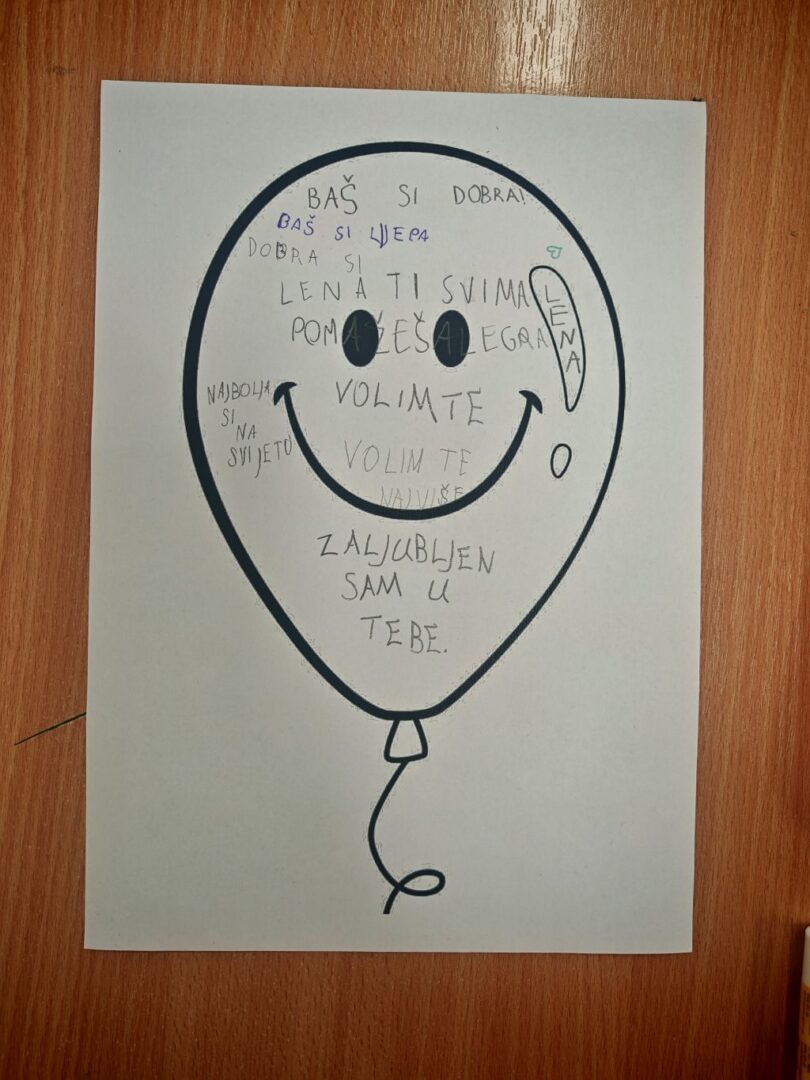 BAŠ SI DOBRA!
BAŠ SI LJEPA
DOBRA SI
LENA TI SVIMA
POMAŽEŠ ALEGRA
LENA
VOLIM TE
NAJBOLJA
SI
NA
SVIJETU
VOLIM TE
NAJVIŠE
ZALJUBLJEN
SAM U
TEBE.